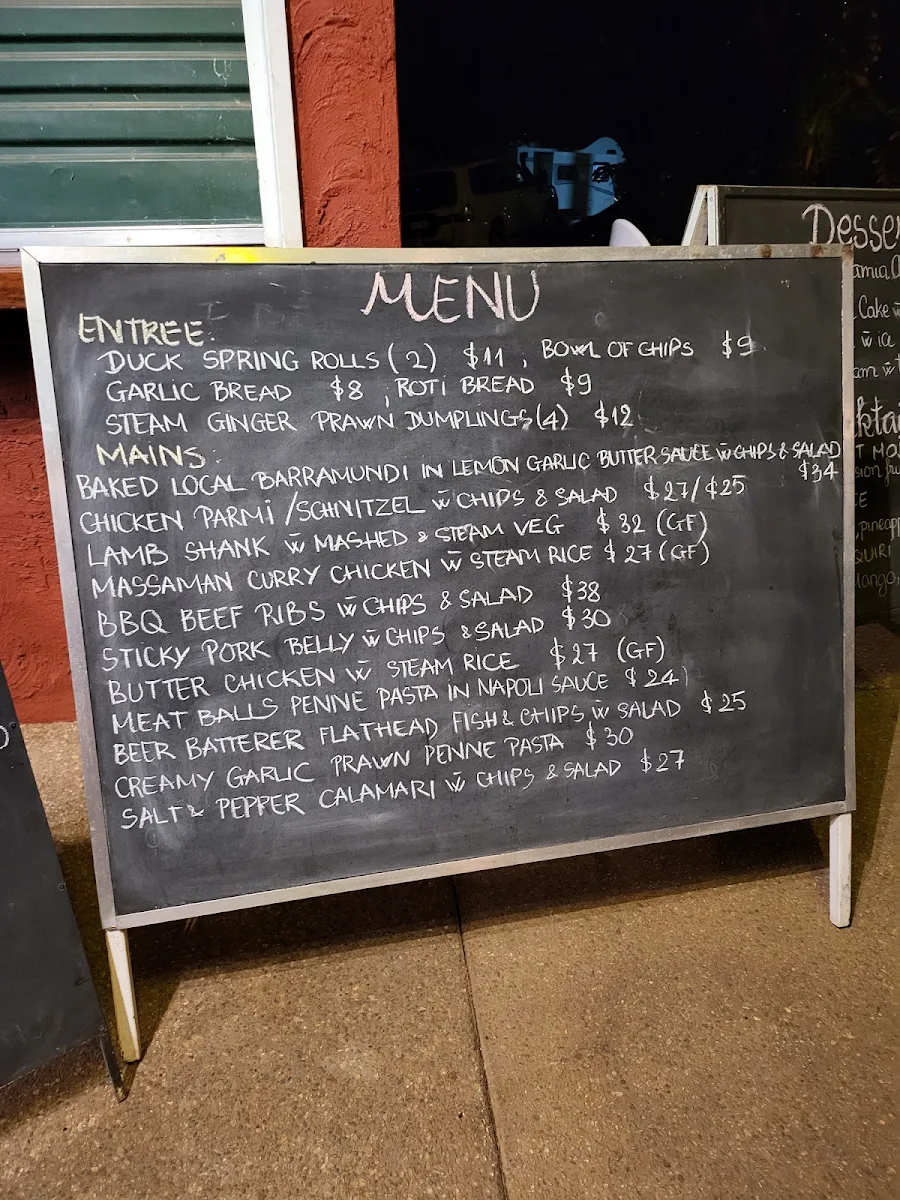 MENU
ENTREE:
DUCK SPRING ROLLS (2) $11, BOWL OF CHIPS $9
GARLIC BREAD $8, ROTI BREAD $9
STEAM GINGER PRAWN DUMPLINGS (4) $12
MAINS:
BAKED LOCAL BARRAMUNDI IN LEMON GARLIC BUTTER SAUCE w̄ CHIPS & SALAD
$34
CHICKEN PARMi / SCHNITZEL w̄ CHIPS & SALAD $27/$25
LAMB SHANK w̄ MASHED & STEAM VEG $32 (GF)
MASSAMAN CURRY CHICKEN w̄ STEAM RICE $27 (GF)
BBQ BEEF RIBS w̄ CHIPS & SALAD $38
STICKY PORK BELLY w̄ CHIPS & SALAD $30
BUTTER CHICKEN w̄ STEAM RICE $27 (GF)
MEAT BALLS PENNE PASTA IN NAPOLI SAUCE $24
BEER BATTERER FLATHEAD FISH & CHIPS w̄ SALAD $25
CREAMY GARLIC PRAWN PENNE PASTA $30
SALT & PEPPER CALAMARI w̄ CHIPS & SALAD $27
Desser
Cake w̄
w̄ ice